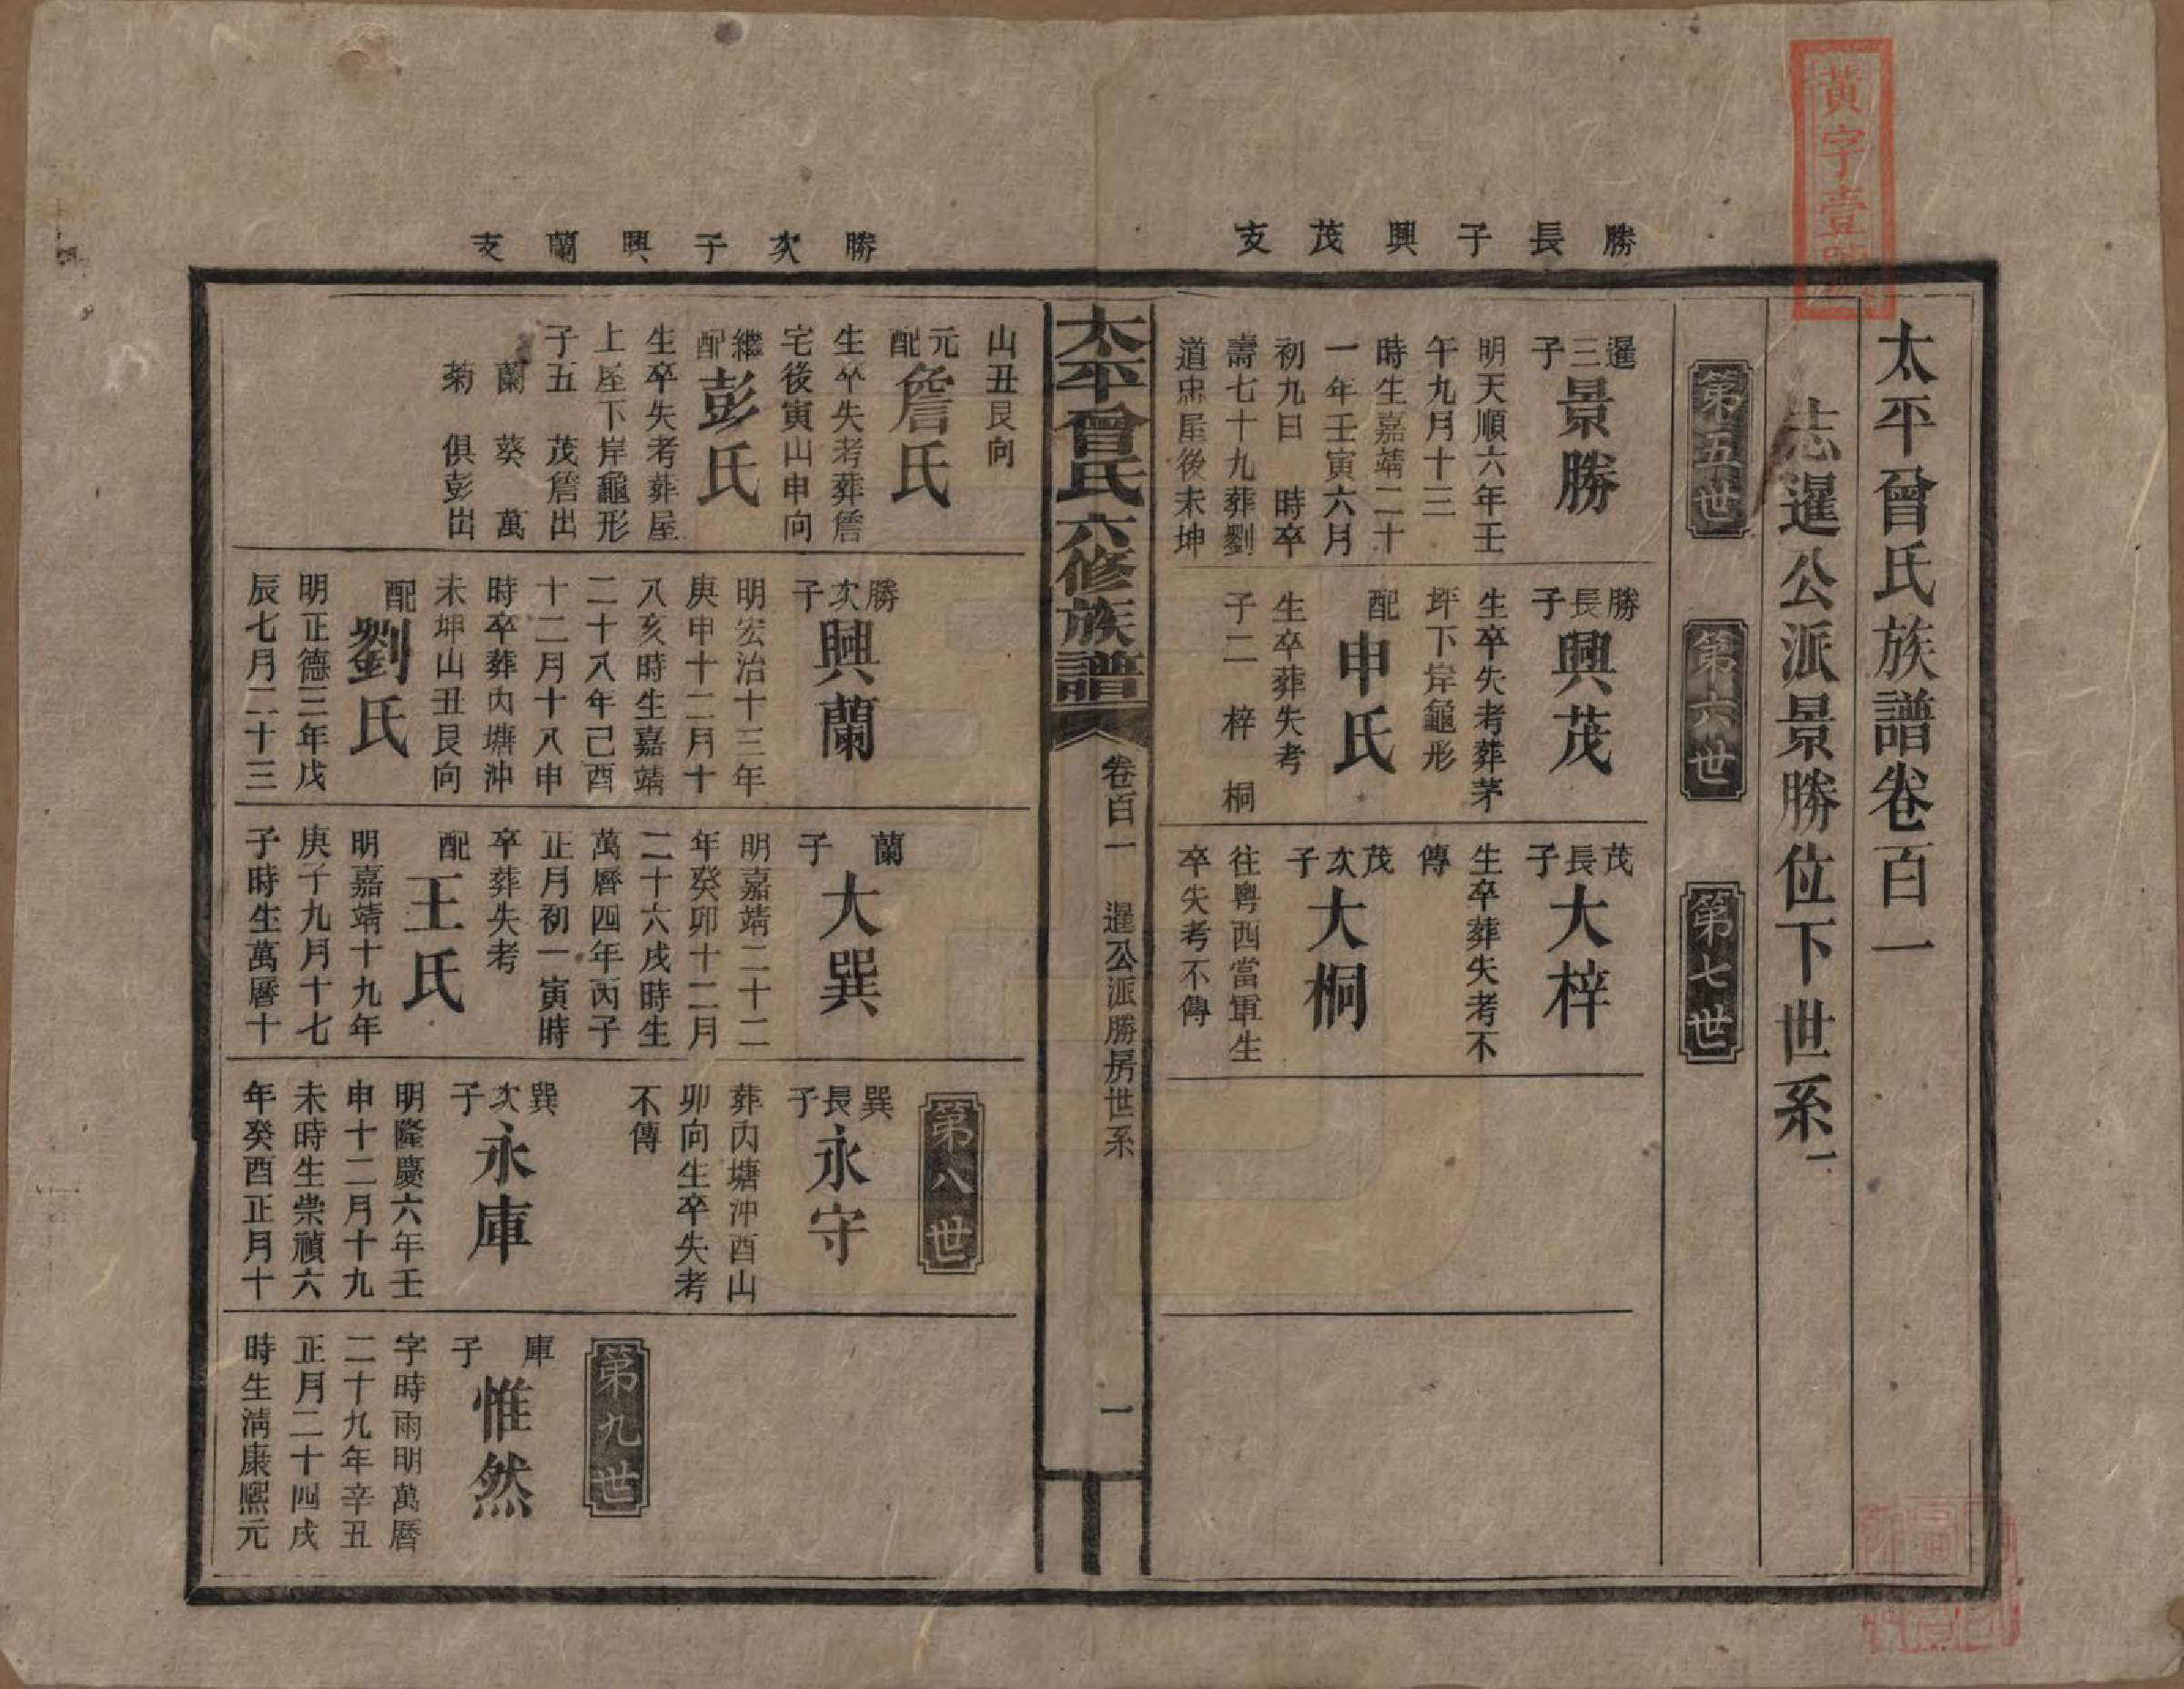 黃字壹號
太平曾氏族譜卷百一
志暹公派景勝位下世系一
第五世
第六世
第七世
勝長子興茂支
暹三子
景勝
明天順六年壬
午九月十三
時生嘉靖二十
一年壬寅六月
初九日　時卒
壽七十九葬劉
道忠屋後未坤
勝長子
興茂
生卒失考葬茅
坪下岸龜形
配
申氏
生卒葬失考
子二　梓　桐
茂長子
大梓
生卒葬失考不
傳
茂次子
大桐
往粵西當軍生
卒失考不傳
太平曾氏六修族譜
卷百一　暹公派勝房世系
一
勝次子興蘭支
山丑艮向
元配
詹氏
生卒失考葬詹
宅後寅山申向
繼配
彭氏
生卒失考葬屋
上屋下岸龜形
子五　茂詹出
蘭　葵　萬
菊　俱彭出
勝次子
興蘭
明宏治十三年
庚申十二月十
八亥時生嘉靖
二十八年己酉
十二月十八申
時卒葬內塘沖
未坤山丑艮向
配
劉氏
明正德三年戊
辰七月二十三
蘭子
大巽
明嘉靖二十二
年癸卯十二月
二十六戌時生
萬曆四年丙子
正月初一寅時
卒葬失考
配
王氏
明嘉靖十九年
庚子九月十七
子時生萬曆十
第八世
巽長子
永守
葬內塘沖酉山
卯向生卒失考
不傳
巽次子
永庫
明隆慶六年壬
申十二月十九
未時生崇禎六
年癸酉正月十
第九世
庫子
惟然
字時雨明萬曆
二十九年辛丑
正月二十四戌
時生清康熙元